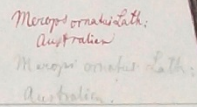 Merops ornatus Lath:
Australien
Merops ornatus Lath:
Australien.